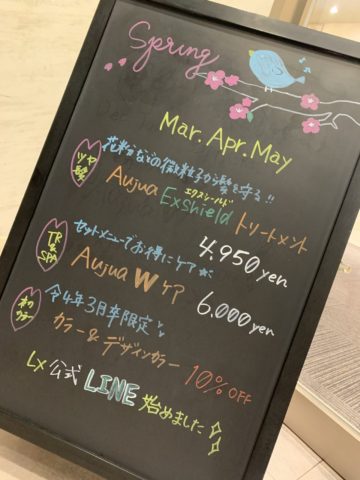 Spring
Mar. Apr. May
ツヤ髪
花粉などの微粒子から髪を守る!!
エクスシールド
Aujua Exshield トリートメント
4.950 yen
TR & SPA
セットメニューでお得にケア☆
Aujua W ケア
6.000 yen
春のカラー
令4年3月卒限定
カラー & デザインカラー
10% OFF
Lx 公式 LINE 始めました